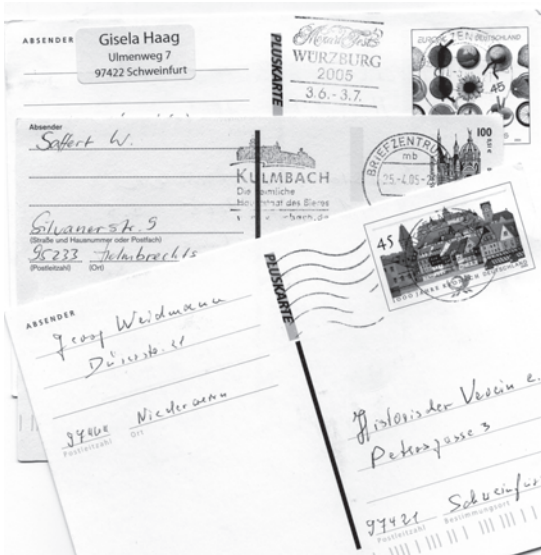 ABSENDER
Gisela Haag
Ulmenweg 7
97422 Schweinfurt
PLUSKARTE
WÜRZBURG
2005
3.6.-3.7.
DEUTSCHLAND
45
Absender
Saffert W.
Silvanerstr. 5
(Straße und Hausnummer oder Postfach)
95233 Helmbrechts
(Postleitzahl) (Ort)
KULMBACH
Die heimliche
Hauptstadt des Bieres
BRIEFZENTRUM
mb
25.-4.05-
100
ABSENDER
Georg Weidmann
Dürerstr. 21
97464 Niederwerrn
Postleitzahl Ort
PLUSKARTE
45
1000 JAHRE DEUTSCHLAND
Historischer Verein e.
Petersgasse 3
97421 Schweinfur
Postleitzahl Bestimmungsort